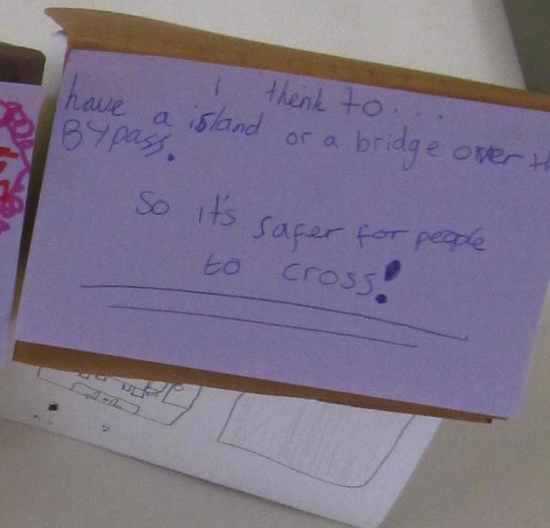 I think to...
have a island or a bridge over th
BYpass.
So it's safer for people
to cross!